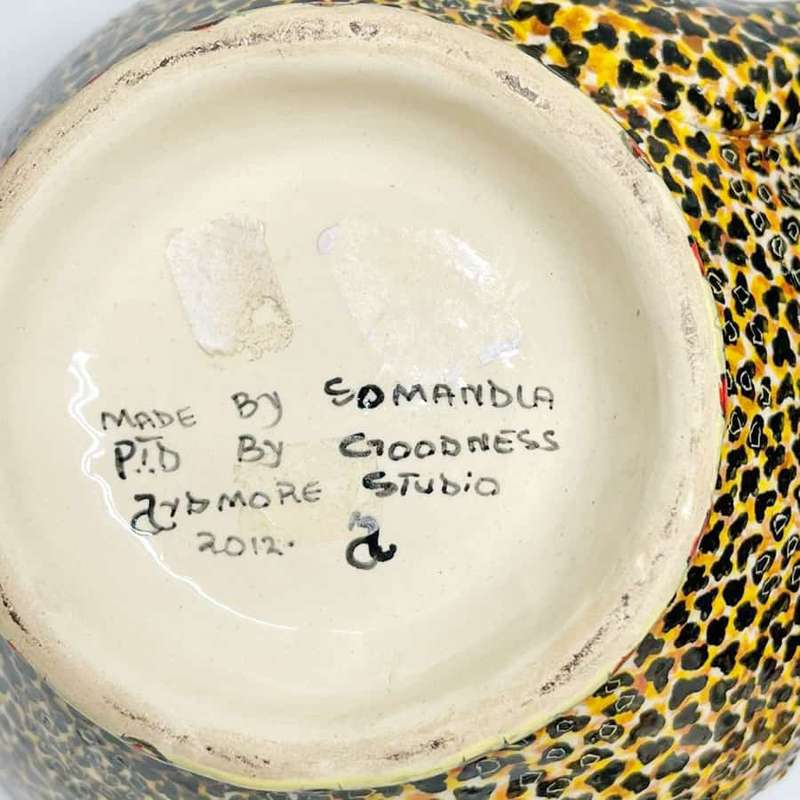 MADE BY SOMANDLA
PTD BY GOODNESS
ARDMORE STUDIO
2012. a